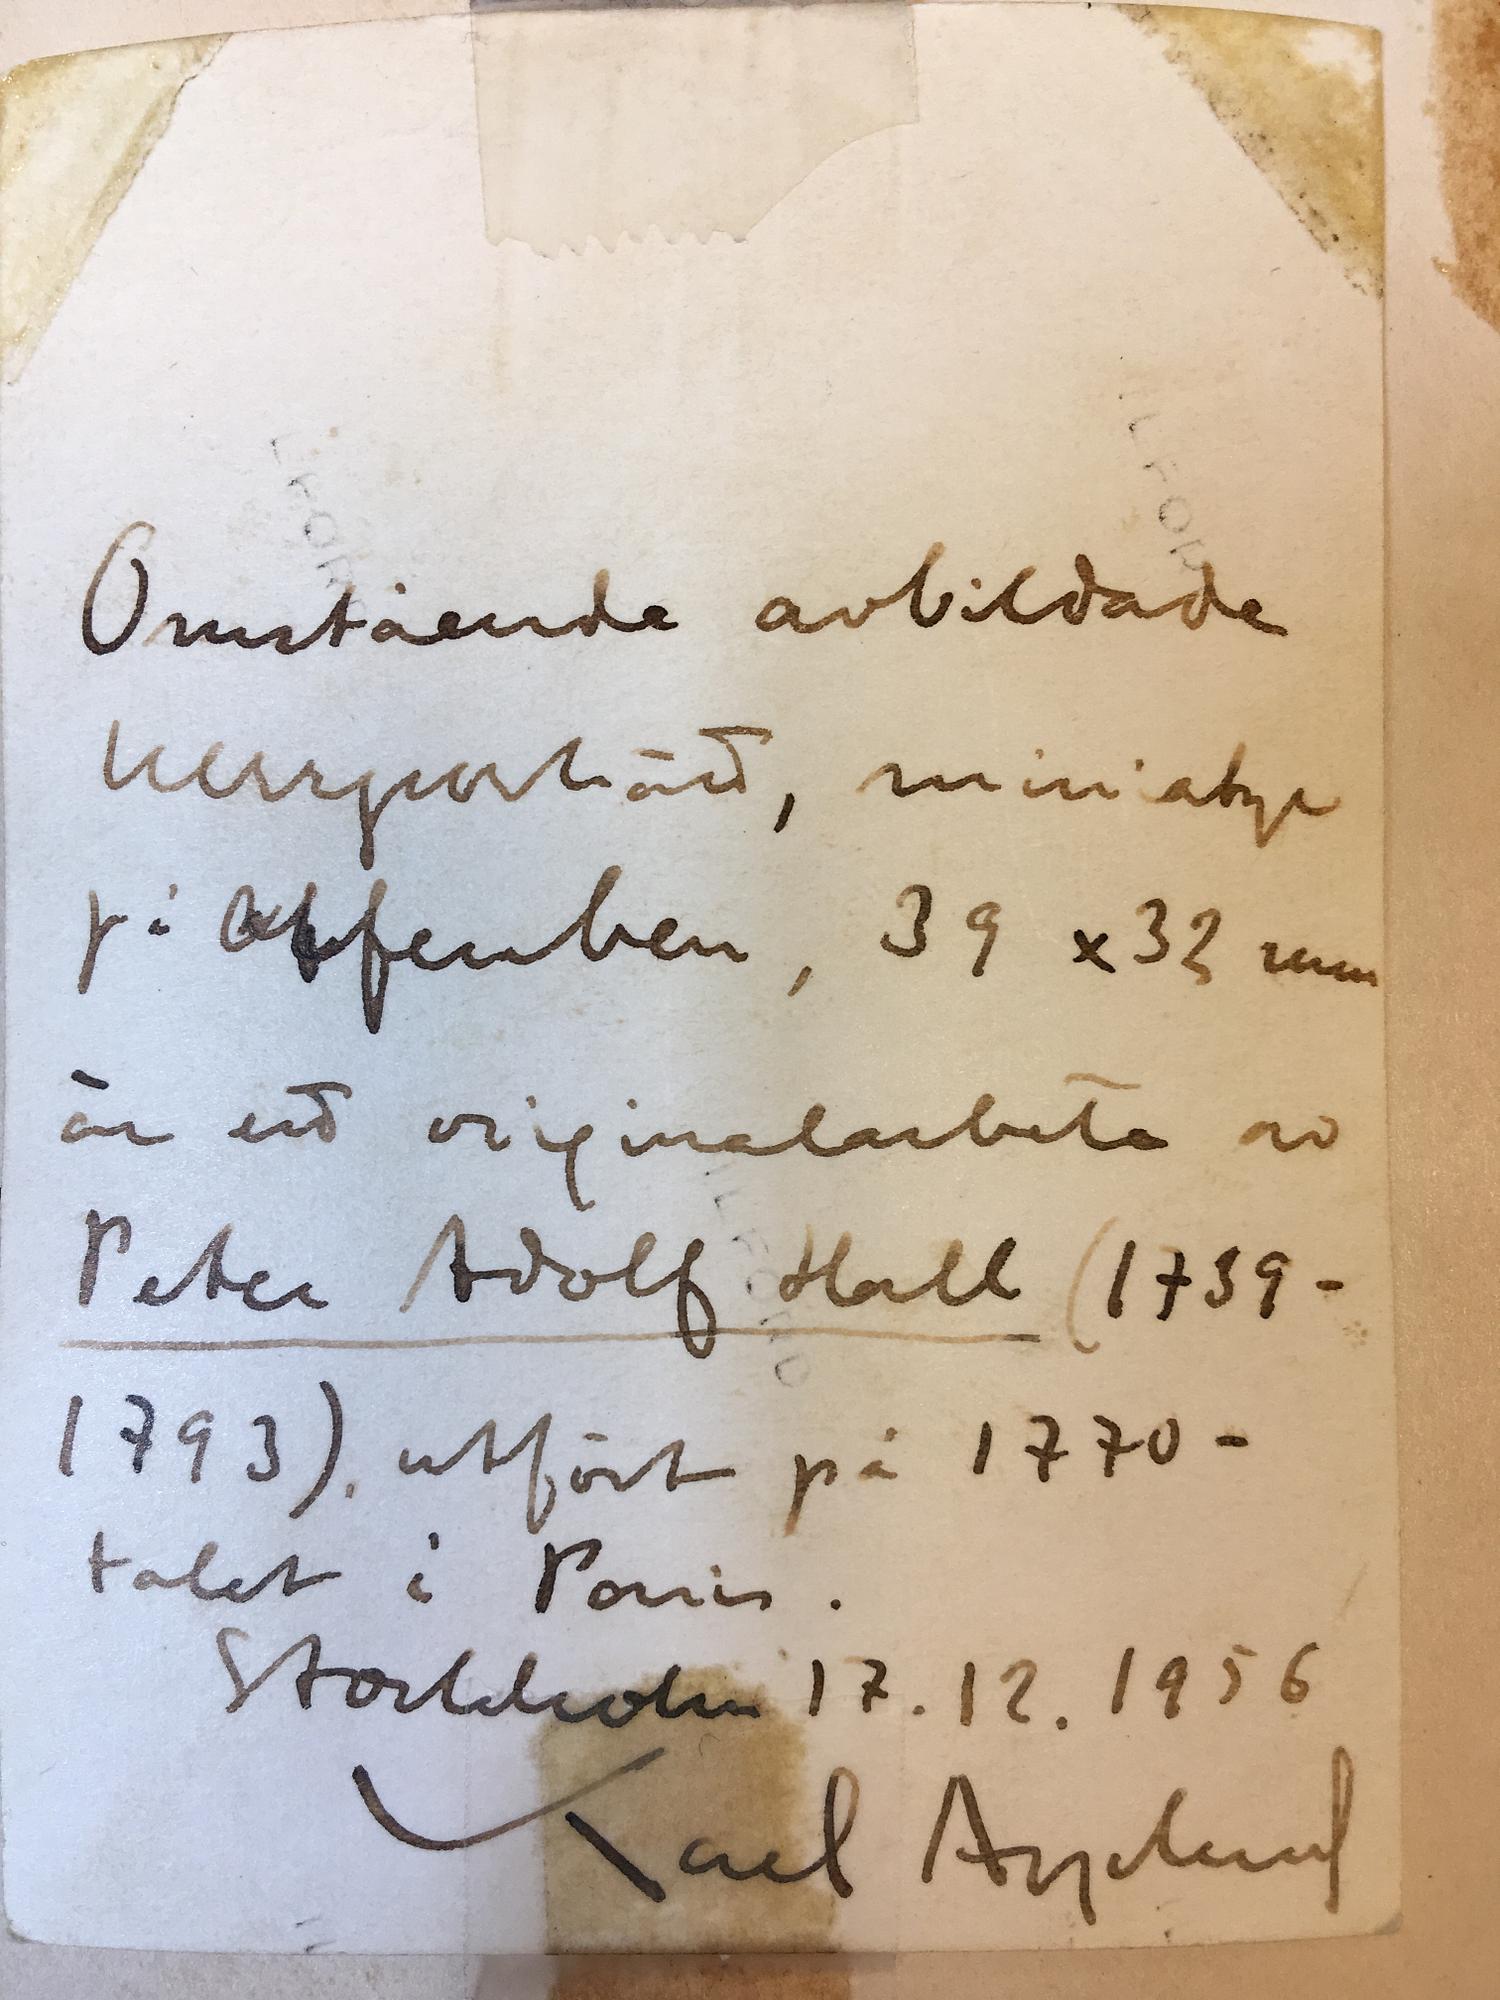 ILFORD
ILFORD
Omstående avbildade
herrporträtt, miniatyr
på elfenben, 39 x 32 mm
är ett originalarbete av
Peter Adolf Hall (1739-
ILFORD
1793), utfört på 1770-
talet i Paris.
Stockholm 17.12.1956
Karl Asplund